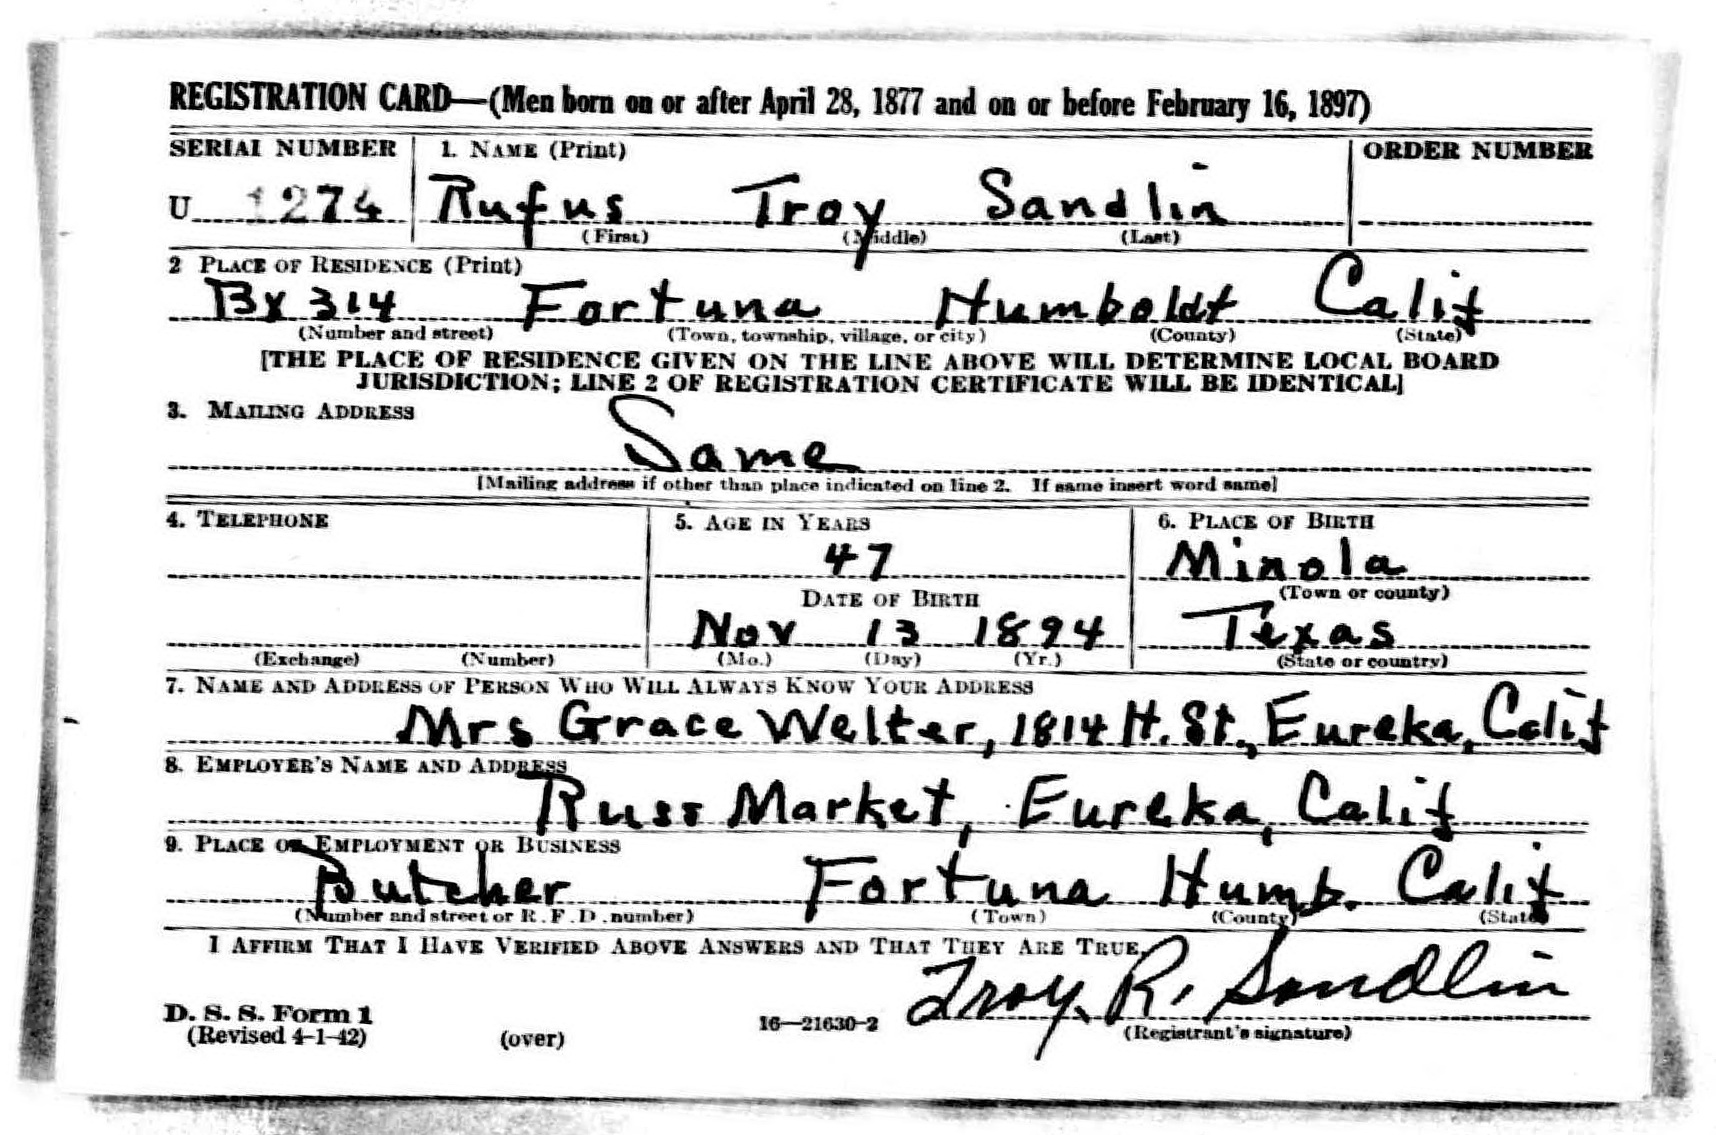 REGISTRATION CARD—(Men born on or after April 28, 1877 and on or before February 16, 1897)
SERIAL NUMBER 1. NAME (Print) ORDER NUMBER
U 1274 Rufus Troy Sandlin
(First) (Middle) (Last)
2 PLACE OF RESIDENCE (Print)
Bx 314 Fortuna Humboldt Calif
(Number and street) (Town, township, village, or city) (County) (State)
[THE PLACE OF RESIDENCE GIVEN ON THE LINE ABOVE WILL DETERMINE LOCAL BOARD
JURISDICTION; LINE 2 OF REGISTRATION CERTIFICATE WILL BE IDENTICAL]
3. MAILING ADDRESS
Same
[Mailing address if other than place indicated on line 2. If same insert word same]
4. TELEPHONE 5. AGE IN YEARS 6. PLACE OF BIRTH
47 Minola
DATE OF BIRTH (Town or county)
Nov 13 1894 Texas
(Exchange) (Number) (Mo.) (Day) (Yr.) (State or country)
7. NAME AND ADDRESS OF PERSON WHO WILL ALWAYS KNOW YOUR ADDRESS
Mrs Grace Welter, 1814 H. St., Eureka, Calif
8. EMPLOYER'S NAME AND ADDRESS
Russ Market, Eureka, Calif
9. PLACE OF EMPLOYMENT OR BUSINESS
Butcher Fortuna Humb. Calif
(Number and street or R. F. D. number) (Town) (County) (State)
I AFFIRM THAT I HAVE VERIFIED ABOVE ANSWERS AND THAT THEY ARE TRUE.
Troy R. Sandlin
D. S. S. Form 1
(Revised 4-1-42) (over) 16—21630-2 (Registrant's signature)